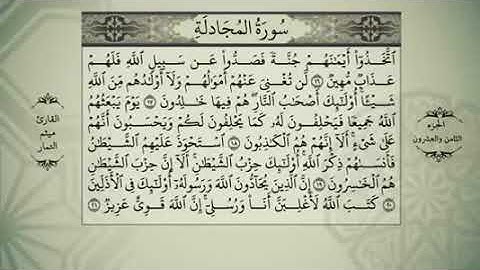 سُورَةُ المُجَادلَةِ
ٱتَّخَذُوٓا۟ أَيْمَـٰنَهُمْ جُنَّةً فَصَدُّوا۟ عَن سَبِيلِ ٱللَّهِ فَلَهُمْ
عَذَابٌ مُّهِينٌ ١٦ لَّن تُغْنِىَ عَنْهُمْ أَمْوَٰلُهُمْ وَلَآ أَوْلَـٰدُهُم مِّنَ ٱللَّهِ
شَيْـًٔا ۚ أُو۟لَـٰٓئِكَ أَصْحَـٰبُ ٱلنَّارِ ۖ هُمْ فِيهَا خَـٰلِدُونَ ١٧ يَوْمَ يَبْعَثُهُمُ
ٱللَّهُ جَمِيعًا فَيَحْلِفُونَ لَهُۥ كَمَا يَحْلِفُونَ لَكُمْ ۖ وَيَحْسَبُونَ أَنَّهُمْ
عَلَىٰ شَىْءٍ ۚ أَلَآ إِنَّهُمْ هُمُ ٱلْكَـٰذِبُونَ ١٨ ٱسْتَحْوَذَ عَلَيْهِمُ ٱلشَّيْطَـٰنُ
فَأَنسَىٰهُمْ ذِكْرَ ٱللَّهِ ۚ أُو۟لَـٰٓئِكَ حِزْبُ ٱلشَّيْطَـٰنِ ۚ أَلَآ إِنَّ حِزْبَ ٱلشَّيْطَـٰنِ
هُمُ ٱلْخَـٰسِرُونَ ١٩ إِنَّ ٱلَّذِينَ يُحَآدُّونَ ٱللَّهَ وَرَسُولَهُۥٓ أُو۟لَـٰٓئِكَ فِى ٱلْأَذَلِّينَ
٢٠ كَتَبَ ٱللَّهُ لَأَغْلِبَنَّ أَنَا۠ وَرُسُلِىٓ ۚ إِنَّ ٱللَّهَ قَوِىٌّ عَزِيزٌ ٢١
الجزء
الثامن والعشرون
القارئ
ميثم
التمار